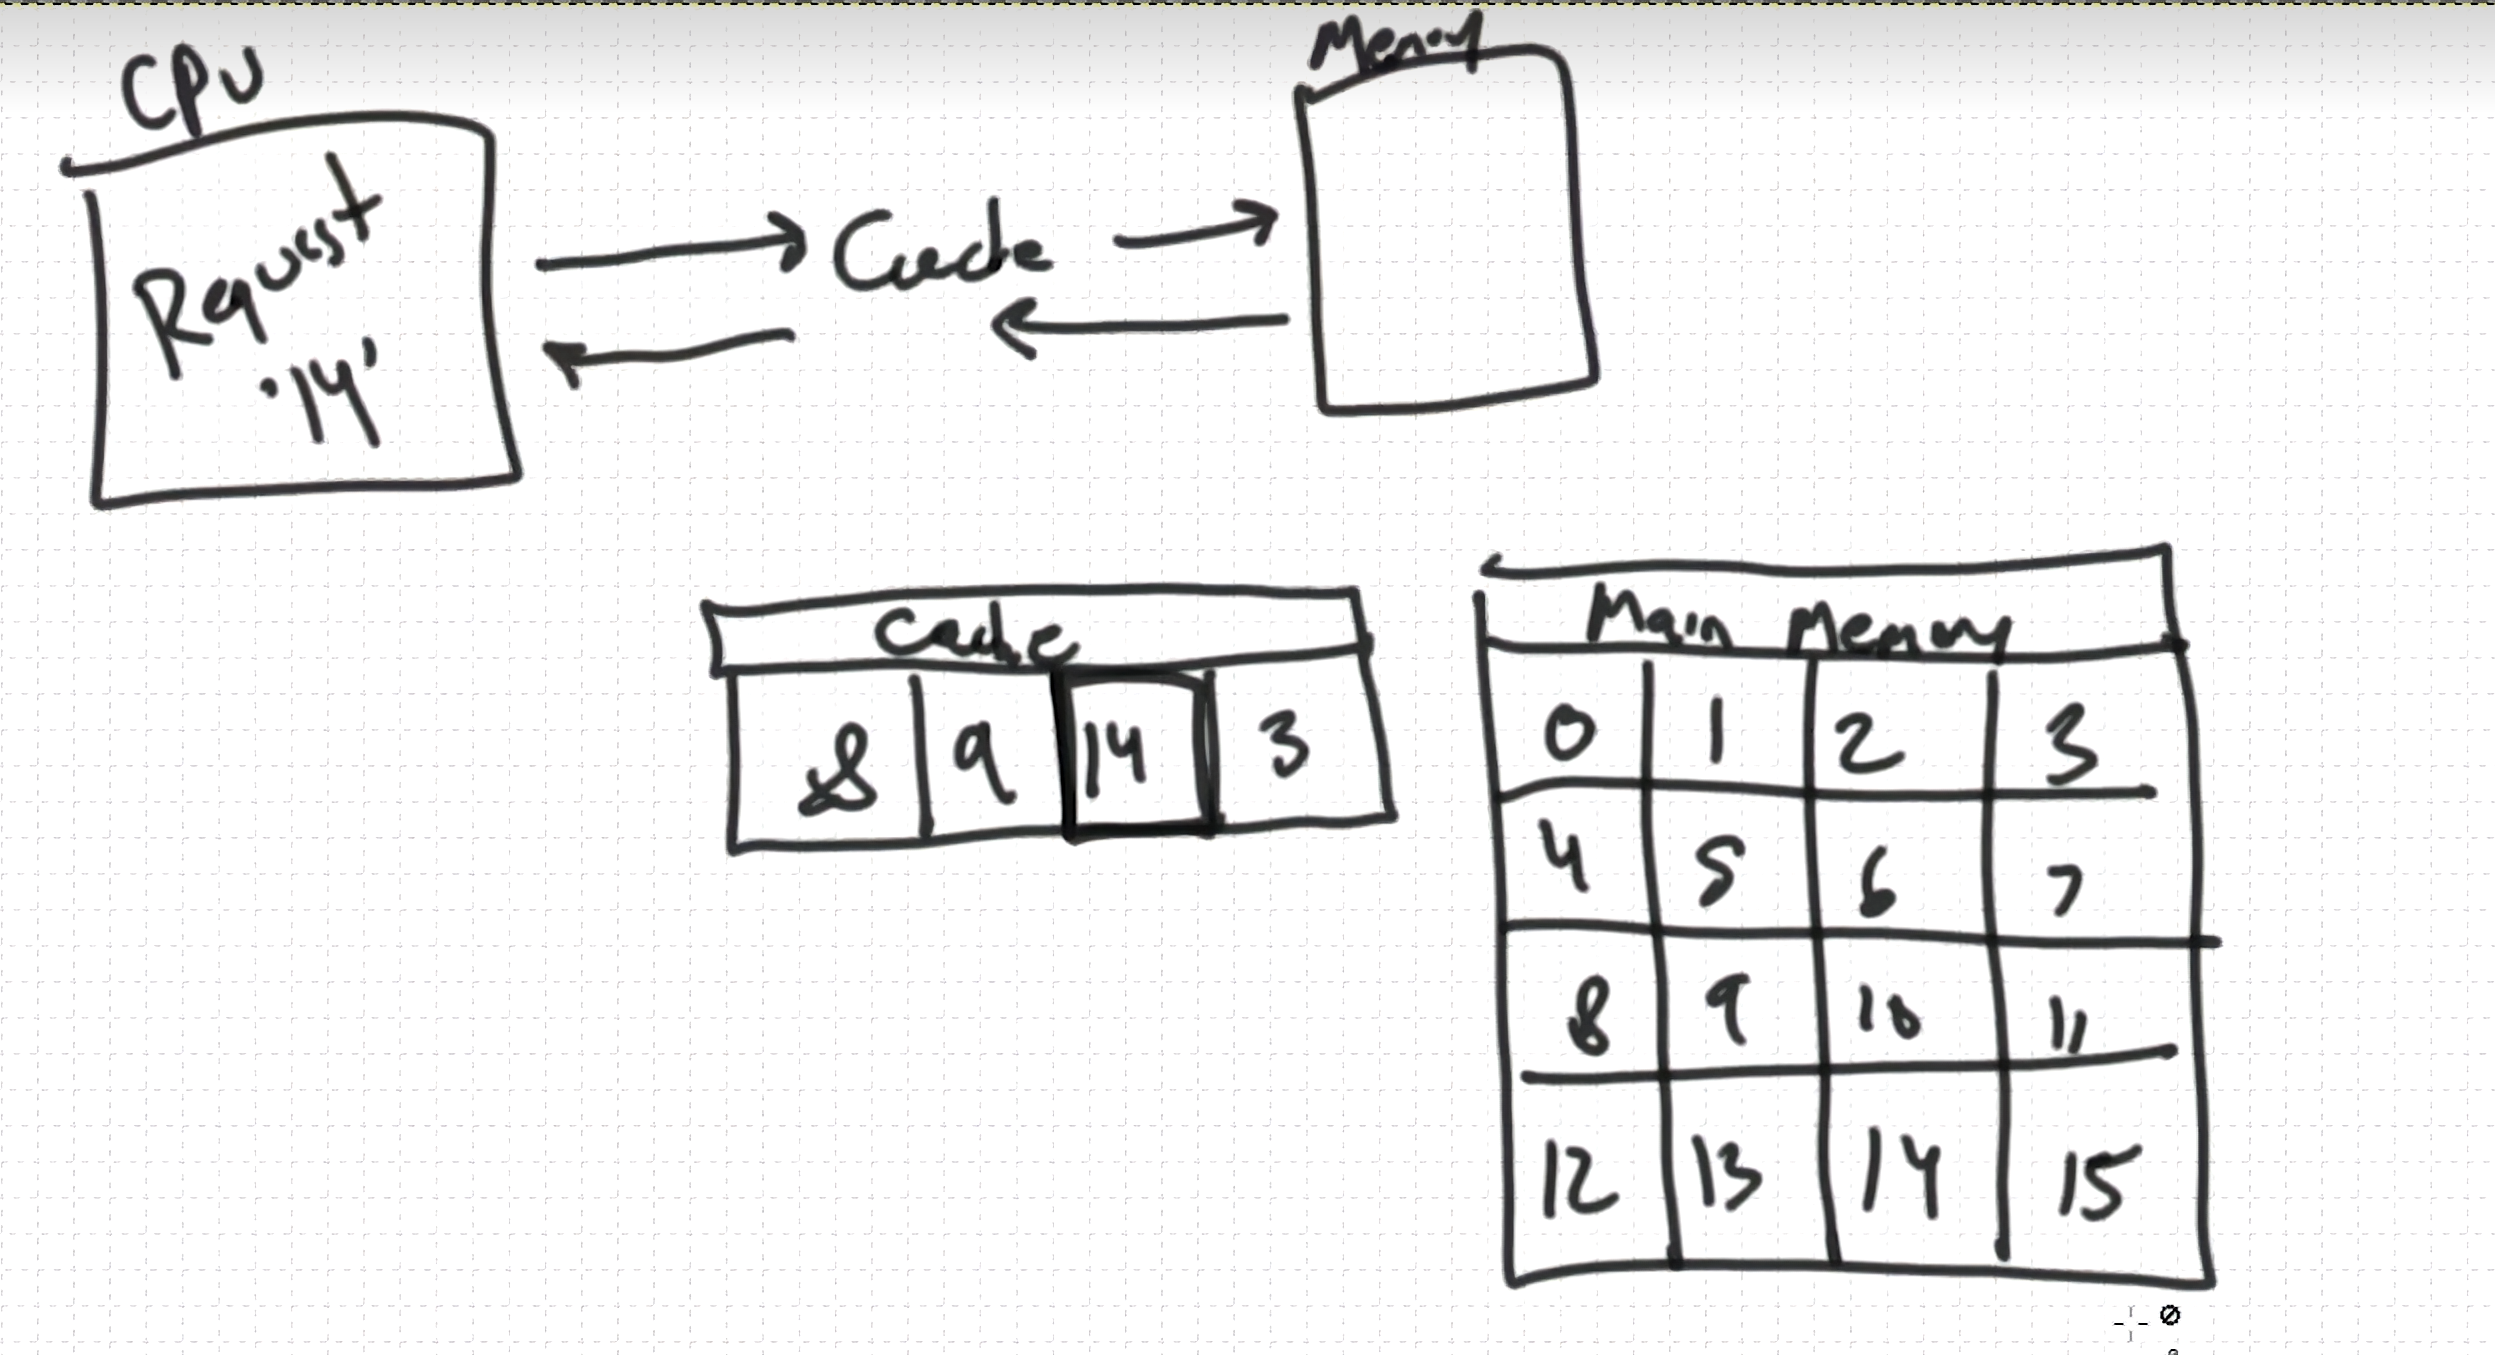 CPU
Memory
Request
"14"
Cache
Cache
8 9 14 3
Main Memory
0 1 2 3
4 5 6 7
8 9 10 11
12 13 14 15